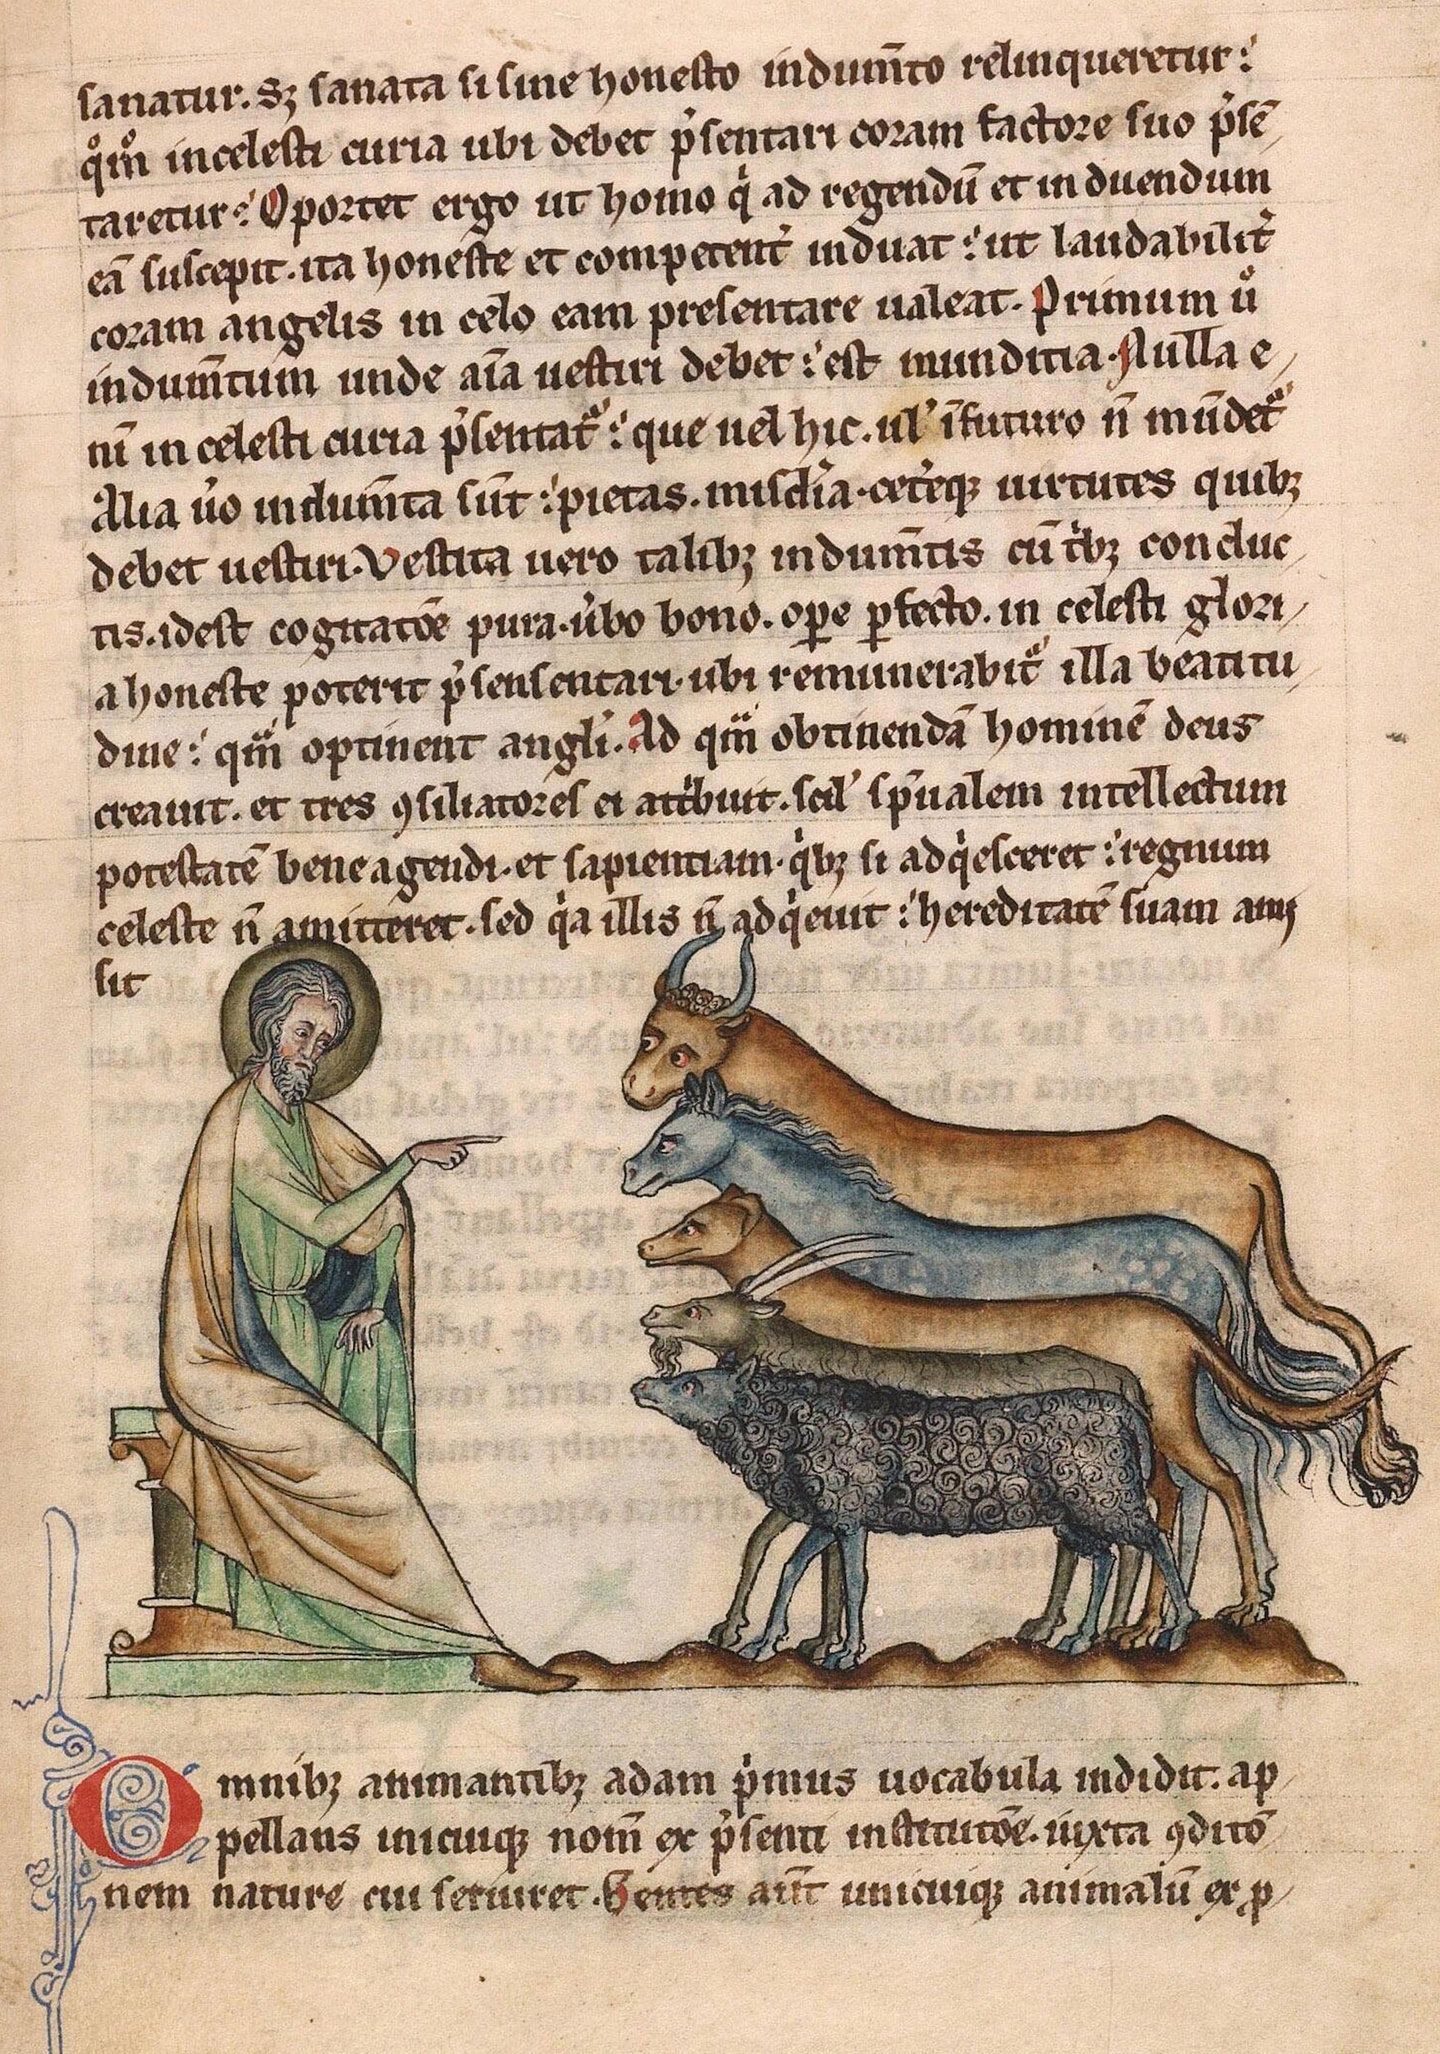 sanatur. Sꝫ sanata si sine honesto indum̄to relinqueretur:
qͦm̊ in celesti curia ubi debet p̾sentari coram factore suo p̾sē
taretur: Oportet ergo ut homo q̾ ad regendū et induendum
eā suscepit. ita honeste et competent̾ induat: ut laudabilit̾
coram angelis in celo eam presentare ualeat. Primum uͦ
indum̄tum unde aīa uestiri debet: est munditia. Nulla e
nī in celesti curia p̾sentat᷑: que uel hic. ul' ī futuro n̄ mūdet᷑
Alia u̾o indum̄ta sūt: pietas. misc̾dia. cet̾eqꝫ uirtutes quibꝫ
debet uestiri. Vestita uero talibꝫ indum̄tis cū t̾bꝫ conduc
tis. idest cogitatōe pura. u̾bo bono. oꝑe ꝑfecto. in celesti glori
a honeste poterit p̾sensentari. ubi remunerabit᷑ illa beatitu
dine: qm̄ optinent angl̾i. Ad qm̄ obtinendā hominē deus
creauit. et tres ꝯsiliatores ei att̾buit. scil' sp̄ualem intellectum
potestatē bene agendi. et sapientiam. q̾bꝫ si adq̾esceret: regnum
celeste n̄ amitteret. sed q̾a illis n̄ adq̾euit: hereditatē suam ami
sit
Omnibꝫ animantibꝫ adam p̾mus uocabula indidit. ap
pellans unicuiqꝫ nom̄ ex p̾senti institutōe. iuxta ꝯditō
nem nature cui seruiret. Gentes aūt unicuiqꝫ animaliū ex ꝓ